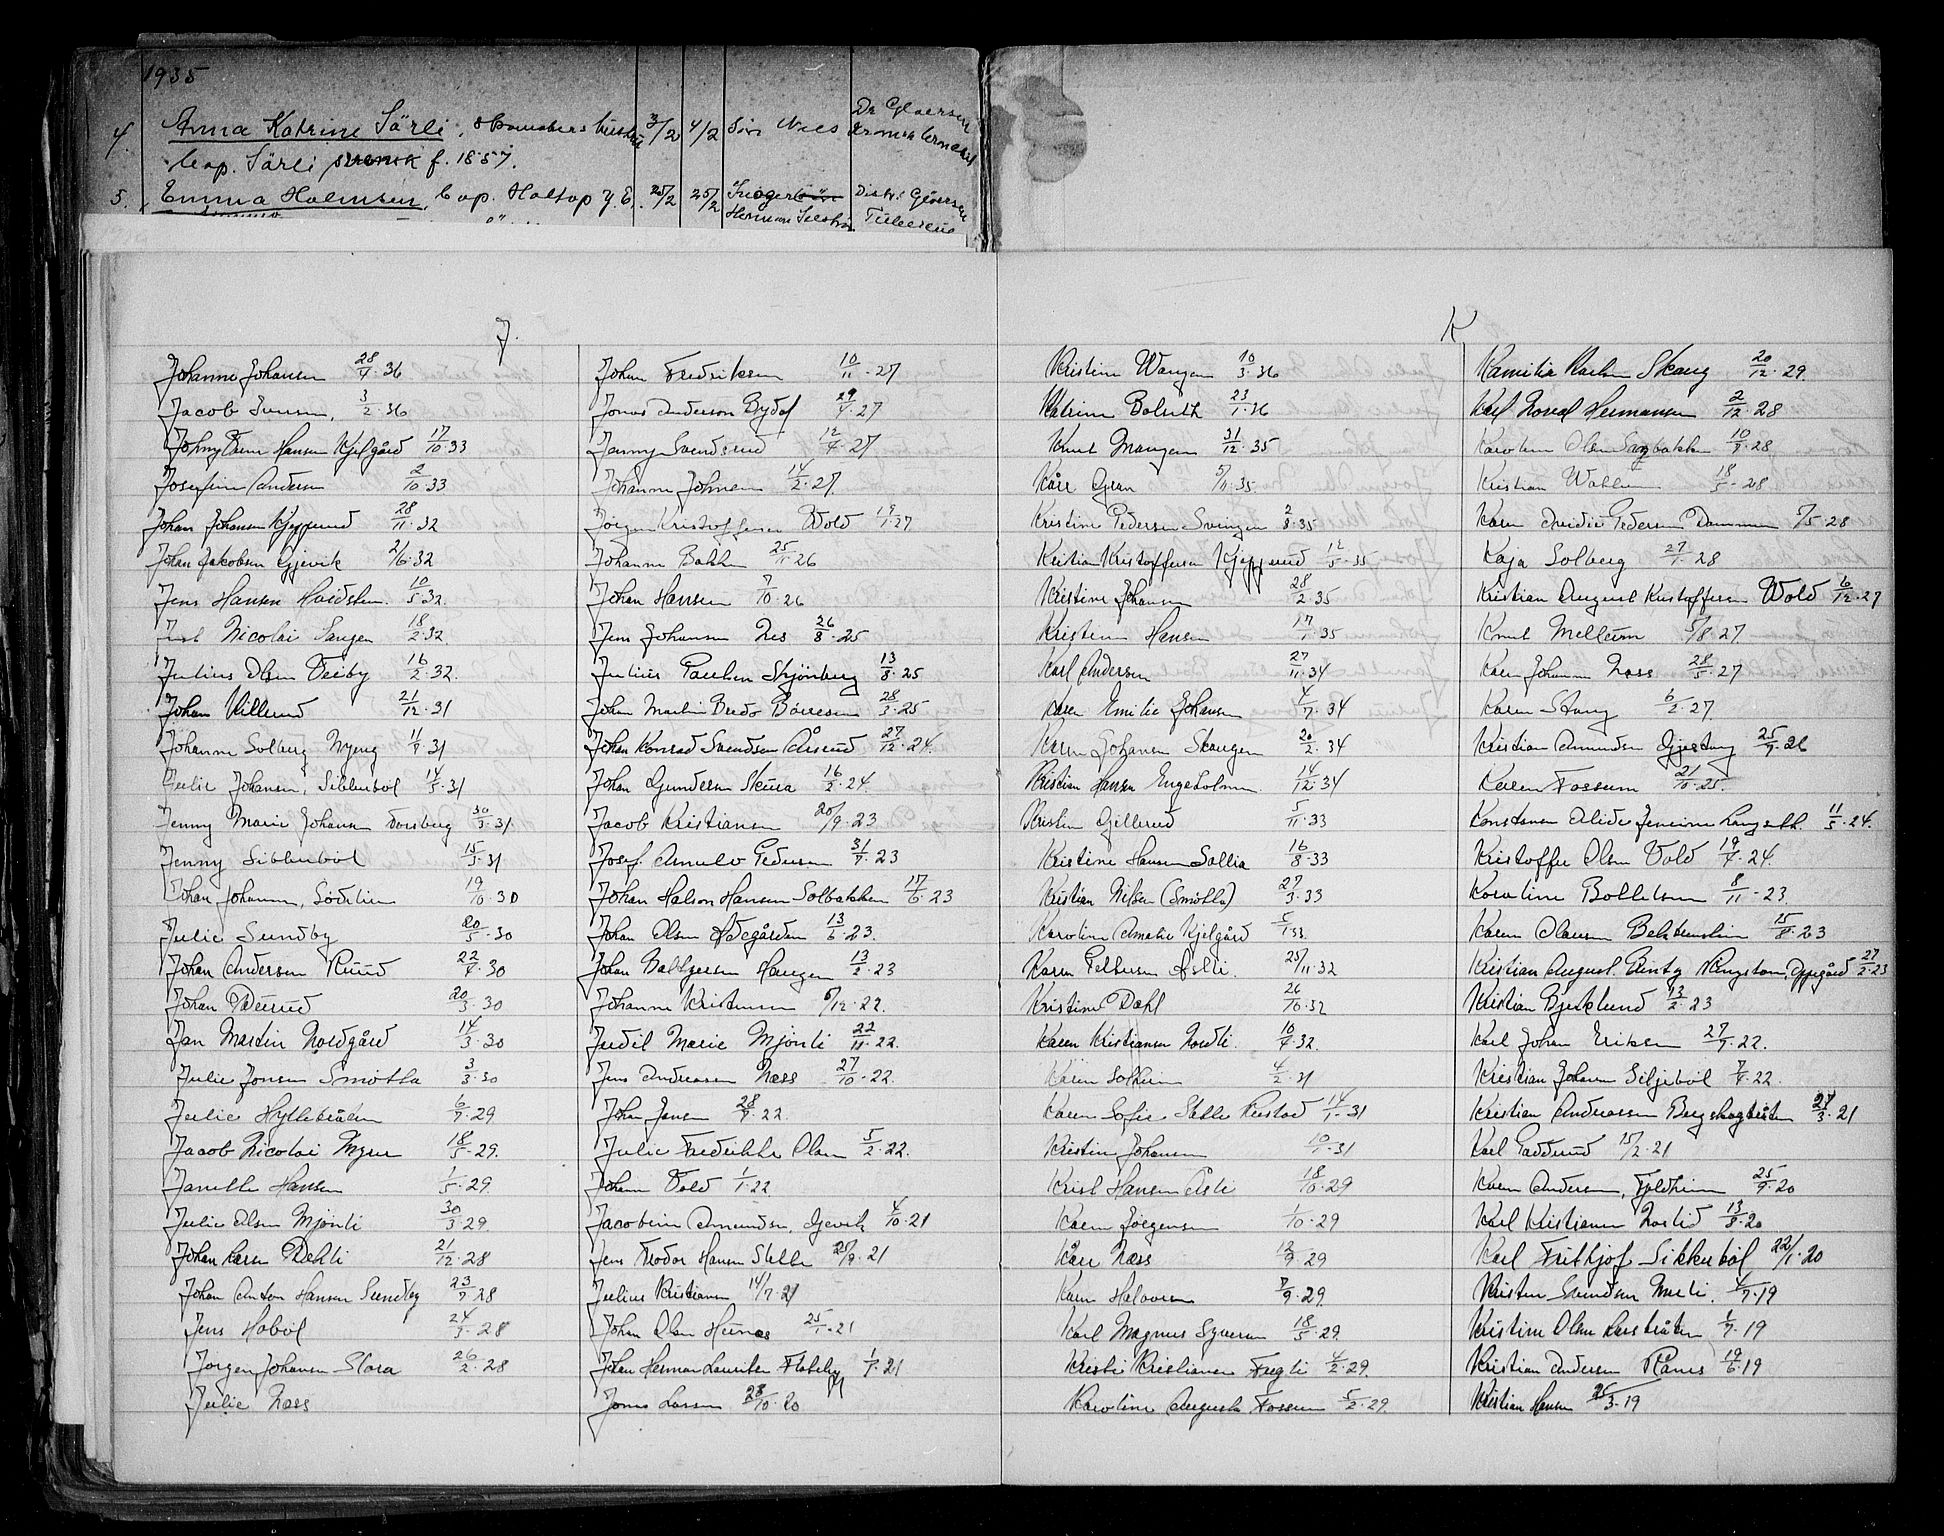 1935
4. Anna Katrine Särli, 3/2 4/2 Dr Gloersen
Cap. Särli f. 1857.
5. Emma Holmsen, Cap. Holtop 25/2 25/2 Distr. Gloersen
J.
Johanne Johansen 28/7.36
Jacob 3/2.36
Hansen Kjelgård 17/10.33
Josefine Andersen 2/10.33
Johan Johansen Kjepperud 28/11.32
Johan Jakobsen Gjevik 2/6.32
Jens Hansen Hvidsten. 10/5.32.
Nicolai Haugen 18/2.32
Julius Olsen Veiby 16/2.32.
Johan Killerud 21/12.31
Johanne Solberg Nyeng 11/9.31
Julie Johansen, Sikkerbøl 14/5.31
Jenny Marie Johansen Torsberg 30/3.31
Jenny Sikkerbøl 15/3.31
Johan Johansen, Sødlien 19/10.30
Julie Sundby 20/5.30
Johan Andersen Ruud 22/4.30
Johan 20/3.30
Jan Martin Nordgård 14/3.30
Julie Jonsen Smøtta 3/3.30
Julie Hyttebråten 6/7.29
Jacob Nicolai Myrer 18/5.29.
Janette Hansen 1/5.29
Julie Olsen Mjønli 30/3.29
Johan Larsen Dehli 21/12.28
Johan Anton Hansen Sundby 23/7.28
Jens Hobøl 24/3.28
Jørgen Johansen Slora 26/2.28
Julie Næss
Johan Fredriksen 10/11.27
Jonas Anderson Bydal 29/4.27
Jenny Svendsrud 12/4.27
Johanne Johnsen 14/2.27.
Jørgen Kristoffersen Wold 19/1.27
Johanne Bakken 25/11.26
Johan Hansen 7/10.26
Jens Johansen Nes 26/8.25
Julius Paulsen Skjønberg 13/8.25
Johan Martin Bredo Børresen 28/3.25
Johan Konrad Svendsen Åsrud 27/12.24.
Johan Gundersen Skura 16/2.24.
Jacob Kristiansen 20/9.23
Josef Arnulv Pedersen 31/7.23
Johan Halson Hansen Solbakken 17/6.23
Johan Olsen Ødegården 13/6.23.
Johan Baltzersen Haugen 13/2.23
Johanne Kristensen 6/12.22.
Judil Marie Mjønli 22/11.22.
Jens Andreasen Næss 27/10.22.
Johan Jansen 28/7.22.
Julie Fredrikke Olsen 5/2.22.
Johan Vold 1/1.22
Jacobine Amundsen, Gjevik 4/10.21
Jens Teodor Hansen Stelle 25/9.21
Julius Kristiansen 14/7.21
Johan Olsen Hunæs 25/1.21
Johan Herman Lauritsen Flateby 1/1.21
Jonas Larsen 28/10.20
K
Kristine Wangen 10/3.36
Katrine Bolseth 23/1.36
Knut Mangen 31/12.35
Kåre Gran 5/11.35.
Kristine Pedersen Svingen 2/8.35
Kristian Kristoffersen Kjepperud 12/5.35
Kristine Johansen 28/2.35
Kristian Hansen 17/1.35
Karl Andersen 27/11.34
Karen Emilie Johansen 4/7.34
Karen Johansen Skaugen 20/2.34
Kristian Hansen Engeholmen 14/12.34
Kristian Gillerud 5/11.33
Kristine Hansen Sollia 16/8.33
Kristian Nilsen (Smøtta) 27/3.33
Karoline Amalie Kjelgård 5/1.33.
Karen Pettersen Asli. 25/11.32
Kristine Dahl 26/10.32
Karen Kristiansen Nordli. 10/4.32.
Karen Solheim 4/2.31
Karen Sofie Stelle Rustad 14/1.31
Kristine Johansen 10/1.31
Krist Hansen Åsli 18/10.29
Karen Jørgensen 1/10.29
Kåre Næss 12/9.29
Karen Halvorsen 7/9.29.
Karl Magnus Syversen 18/5.29.
Kristi Kristiansen Fugli 4/2.29.
Karoline Augusta Fossum 5/2.29.
Kamilla Karlsen Skaug 20/12.29.
Karl Hermansen 2/12.28
Karoline Olsen Sagbakken 10/9.28
Kristian Wahlum 18/5.28
Karen Pedersen Dammen 7/5.28
Kaja Solberg 27/1.28
Kristian August Kristoffersen Wold 6/12.27
Knut Mellum 5/8.27.
Karen Johansen Næss 28/5.27
Karen Skaug 6/2.27.
Kristian Amundsen Gjestang 25/9.26
Karen Fossum 21/10.25.
Konstanse Alide Langseth. 11/5.24.
Kristoffer Olsen Vold 19/4.24.
Karoline Bollelsen 8/11.23.
Karen Olausen 15/8.23
Kristian August Oppegård 27/2.23
Kristian Bjerklund 13/2.23
Karl Johan Eriksen 27/7.22.
Kristian Johansen Siljebøl 7/4.22.
Kristian Andreassen Berghagbråten 24/3.21
Karl Gadderud 15/2.21
Karen Andersen, Fjeldheim 25/9.20
Karl Kristiansen 13/8.20
Karl Frithjof Sikkerbøl 22/1.20
Kristen Svendsen 4/9.19
Kristine Olsen 1/7.19
Kristian Andersen Rånes 19/6.19
Kristian Hansen 25/3.19